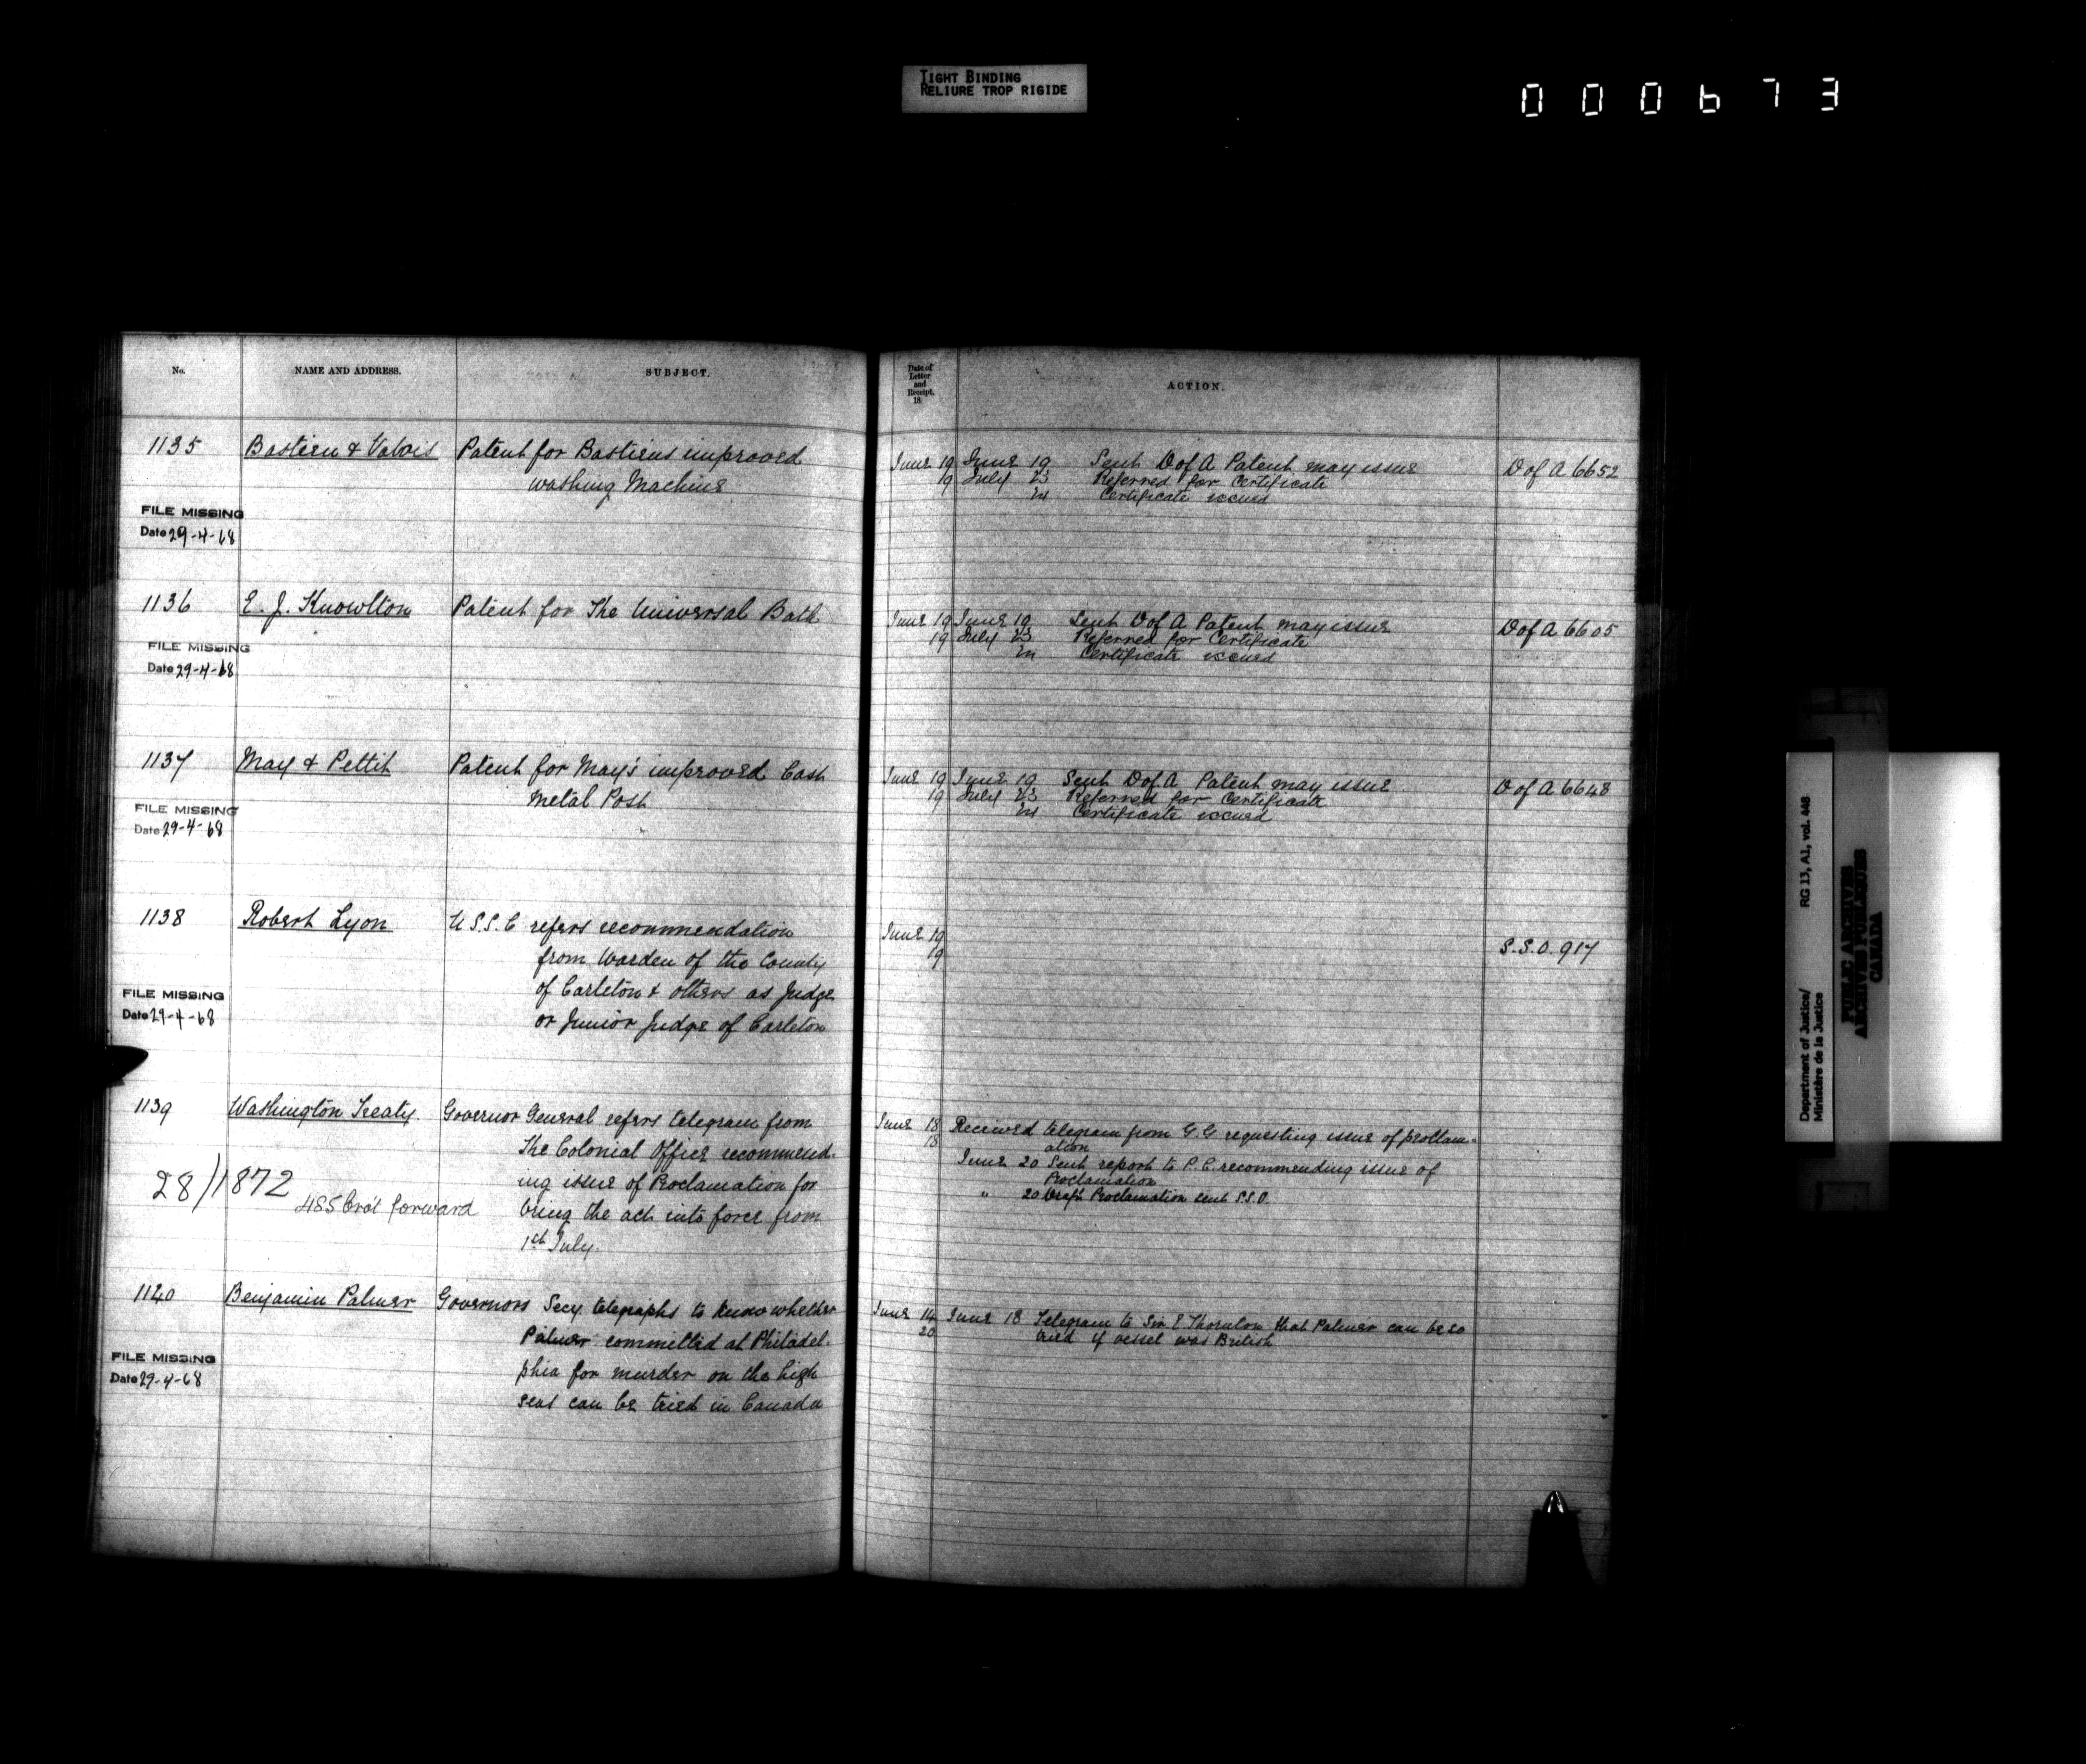 TIGHT BINDING
RELIURE TROP RIGIDE
000673
No. NAME AND ADDRESS. SUBJECT. Date of Letter and Receipt, 18 ACTION.
1135 Bastien & Valois Patent for Bastiens improved June 19 June 19 Sent D of A Patent may issue D of A 6652
washing Machine 19 July 23 Referred for Certificate
24 Certificate issued
FILE MISSING
Date 29-4-68
1136 E. J. Knowlton Patent for The Universal Bath June 19 June 19 Sent D of A Patent may issue D of A 6605
19 July 23 Referred for Certificate
24 Certificate issued
FILE MISSING
Date 29-4-68
1137 May & Pettit Patent for May's improved Cast June 19 June 19 Sent D of A Patent may issue D of A 6648
Metal Post 19 July 23 Referred for Certificate
24 Certificate issued
FILE MISSING
Date 29-4-68
1138 Robert Lyon U S.S. C refers recommendation June 19 S.S.O. 917
from Warden of the County 19
of Carleton & others as Judge
or Junior Judge of Carleton
FILE MISSING
Date 29-4-68
1139 Washington Treaty. Governor General refers telegram from June 18 Received telegram from G.G requesting issue of proclam-
The Colonial Office recommend- 18 ation
ing issue of Proclamation for June 20 Sent report to P.C. recommending issue of
Proclamation
bring the act into force from " 20 Draft Proclamation sent S.S.O.
1st July.
28/1872
485 Bro't forward
1140 Benjamin Palmer Governors Secy. telegraphs to know whether June 14 June 18 Telegram to Sir E. Thornton that Palmer can be so
Palmer committed at Philadel- 20 tried if vessel was British
phia for murder on the high
seas can be tried in Canada
FILE MISSING
Date 29-4-68
Department of Justice/ RG 13, A1, vol. 448
Ministère de la Justice
PUBLIC ARCHIVES
ARCHIVES PUBLIQUES
CANADA